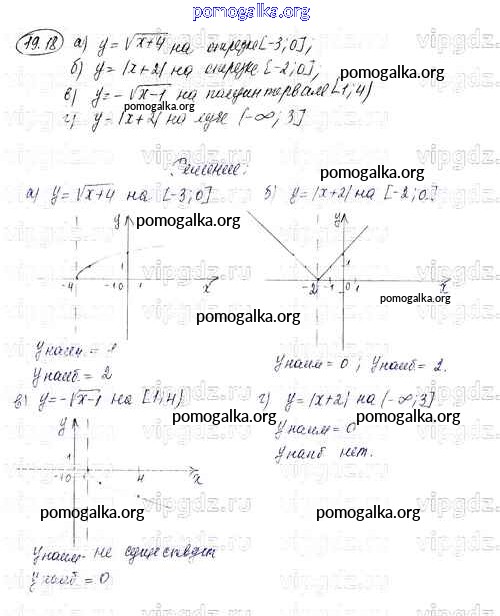 pomogalka.org
19.18 а) y = √x+4 на отрезке [-3; 0];
б) y = |x+2| на отрезке [-2; 0];
в) y = -√x-1 на полуинтервале [1; 4)
pomogalka.org
г) y = |x+2| на луче (-∞; 3]
Решение:
pomogalka.org
а) y = √x+4 на [-3; 0] б) y = |x+2| на [-2; 0]
pomogalka.org
y y
vipgdz.ru
-4 -1 0 1 x -2 -1 0 1 x
pomogalka.org
pomogalka.org
y наим. = 1
y наим = 0; y наиб = 2.
y наиб = 2
pomogalka.org
в) y = -√x-1 на [1; 4) г) y = |x+2| на (-∞; 3]
pomogalka.org
y наим = 0
y
y наиб нет.
1 0 1 4 x
pomogalka.org pomogalka.org
y наим - не существует
pomogalka.org
y наиб = 0